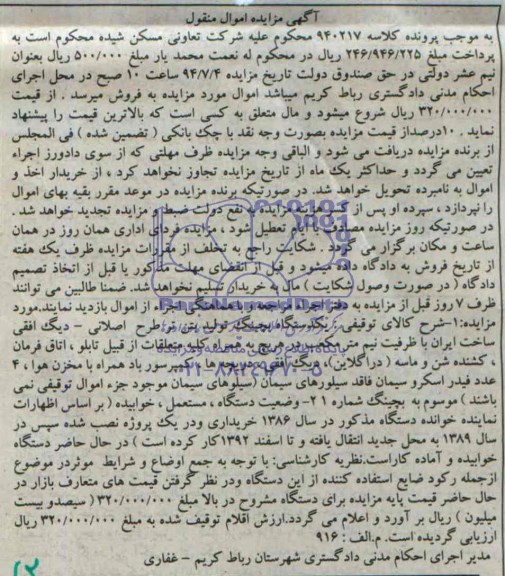 آگهی مزایده اموال منقول
به موجب پرونده کلاسه ۹۴۰۲۱۷ محکوم علیه شرکت تعاونی مسکن شیده محکوم است به
پرداخت مبلغ ۲۴۶/۹۴۶/۲۲۵ ریال در حق محکوم له نعمت محمد یار مبلغ ۵۰۰/۰۰۰ ریال بعنوان
نیم عشر دولتی در حق صندوق دولت تاریخ مزایده ۹۴/۷/۴ ساعت ۱۰ صبح در محل اجرای
احکام مدنی دادگستری رباط کریم میباشد اموال مورد مزایده به فروش میرسد . از قیمت
۳۲۰/۰۰۰/۰۰۰ ریال شروع میشود و مال متعلق به کسی است که بالاترین قیمت را پیشنهاد
نماید . ۱۰درصداز قیمت مزایده بصورت وجه نقد یا چک بانکی ( تضمین شده ) فی المجلس
از برنده مزایده دریافت می شود و الباقی وجه مزایده ظرف مهلتی که از سوی دادورز اجراء
تعیین می گردد و حداکثر یک ماه از تاریخ مزایده تجاوز نخواهد کرد ، از خریدار اخذ و
اموال به نامبرده تحویل خواهد شد. در صورتیکه برنده مزایده در موعد مقرر بقیه بهای اموال
را نپردازد ، سپرده او پس از کسر هزینه مزایده به نفع دولت ضبط و مزایده تجدید خواهد شد .
در صورتیکه روز مزایده مصادف با ایام تعطیل شود ، مزایده فردای اداری همان روز در همان
ساعت و مکان برگزار می گردد . شکایت راجع به تخلف از مقررات مزایده ظرف یک هفته
از تاریخ فروش به دادگاه داده میشود و قبل از انقضای مهلت مذکور یا قبل از اتخاذ تصمیم
دادگاه ( در صورت وصول شکایت ) مال به خریدار تسلیم نخواهد شد. ضمنا طالبین می توانند
ظرف ۷ روز قبل از مزایده به دفتر اجرا مراجعه و با هماهنگی اجراء از اموال بازدید نمایند.مورد
مزایده:۱-شرح کالای توقیفی : یکدستگاه بچینگ تولید بتن تر طرح اصلانی - دیگ افقی
ساخت ایران با ظرفیت نیم مترمکعب در هر بچ به همراه کلیه متعلقات از قبیل تابلو ، اتاق فرمان
، کشنده شن و ماسه ( دراگلاین)، دیگ افقی، کمپرسور باد همراه با مخزن هوا ، ۴
عدد فیدر اسکرو سیمان فاقد سیلورهای سیمان (سیلوهای سیمان موجود جزء اموال توقیفی نمی
باشند ) موسوم به بچینگ شماره ۲۱-وضعیت دستگاه ، مستعمل ، خوابیده ( بر اساس اظهارات
نماینده خوانده دستگاه مذکور در سال ۱۳۸۶ خریداری ودر یک پروژه نصب شده سپس در
سال ۱۳۸۹ به محل جدید انتقال یافته و تا اسفند ۱۳۹۲کار کرده است ) در حال حاضر دستگاه
خوابیده و آماده کاراست.نظریه کارشناسی: با توجه به جمع اوضاع و شرایط موثردر موضوع
ازجمله رکود ضایع استفاده کننده از این دستگاه ودر نظر گرفتن قیمت های متعارف بازار در
حال حاضر قیمت پایه مزایده برای دستگاه مشروح در بالا مبلغ ۳۲۰/۰۰۰/۰۰۰ ( سیصدو بیست
میلیون ) ریال بر آورد و اعلام می گردد.ارزش اقلام توقیف شده به مبلغ ۳۲۰/۰۰۰/۰۰۰ ریال
ارزیابی گردیده است. م.الف : ۹۱۶
مدیر اجرای احکام مدنی دادگستری شهرستان رباط کریم - غفاری
۱۲